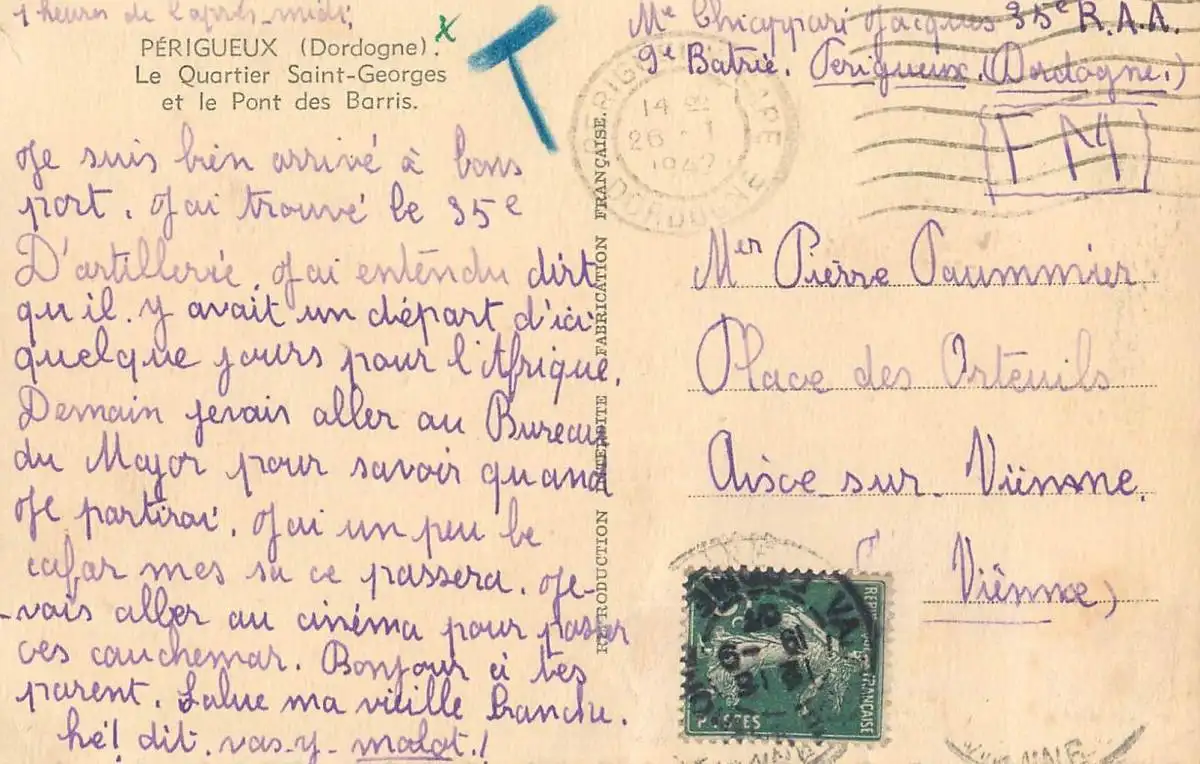 1 heures de l'après-midi,
PÉRIGUEUX (Dordogne).
Le Quartier Saint-Georges
et le Pont des Barris.
Je suis bien arrivé à bons
port. J'ai trouvé le 35e
D'artillerie. J'ai entendu dirt
qu'il. y avait un départ d'ici
quelque jours pour l'Afrique.
Demain jevais aller au Bureau
du Major pour savoir quand
Je partirai. J'ai un peu le
cafar mes sa ce passera. Je-
-vais aller au cinéma pour passer
ces cauchemar. Bonjour à tes
parent. Salue ma vieille branche.
hé! dit. vas-y-malot.!
T
REPRODUCTION INTERDITE FABRICATION FRANÇAISE.
Me Chiappari Jacques 35e R.A.A.
9e Batrie. Perigueux.(Dordogne.)
PERIGUEUX GARE
14 H
26 - 1
1942
DORDOGNE
F M
Mer Pierre Paummier
Place des Orteuils
Aisce-sur-Viënne.
Viënne)
RÉPUBLIQUE FRANÇAISE
POSTES